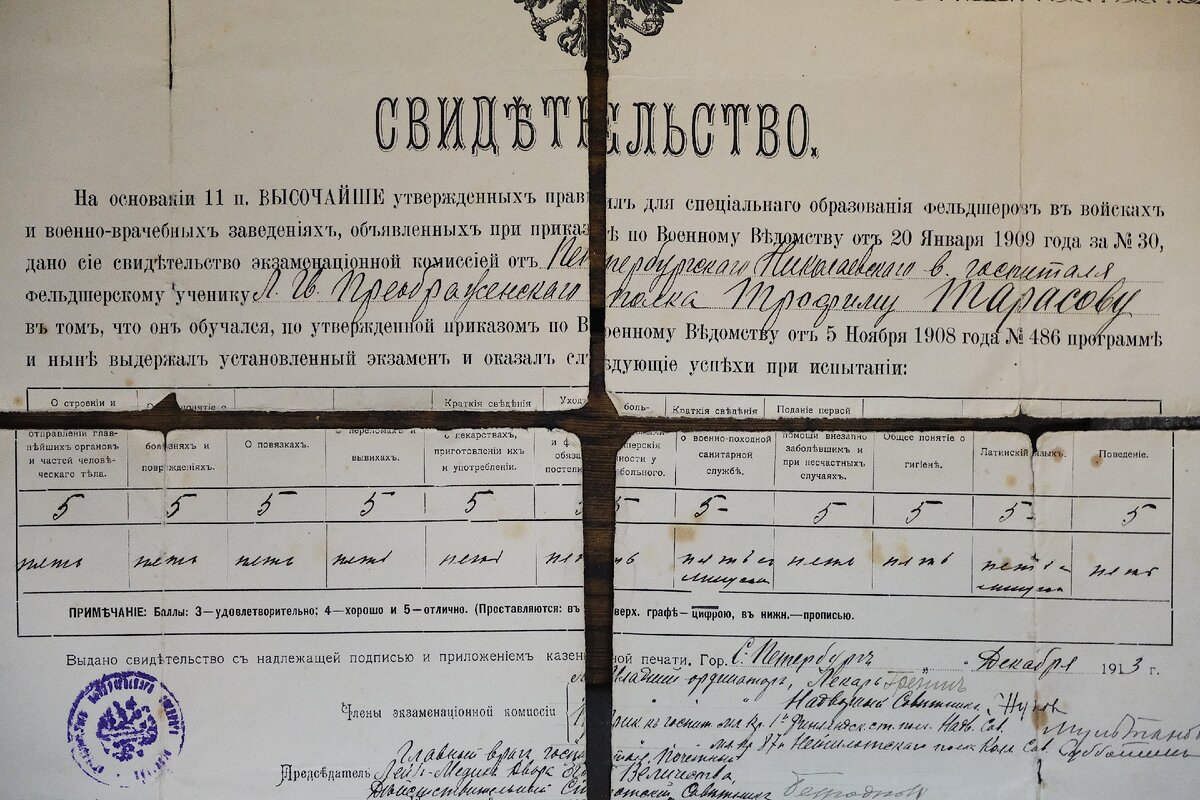 СВИДѢТЕЛЬСТВО.
На основаніи 11 п. ВЫСОЧАЙШЕ утвержденныхъ правилъ для спеціальнаго образованія фельдшеровъ въ войскахъ
и военно-врачебныхъ заведеніяхъ, объявленныхъ при приказѣ по Военному Вѣдомству отъ 20 Января 1909 года за № 30,
дано сіе свидѣтельство экзаменаціонной комиссіей отъ Петербургскаго Николаевскаго в. госпиталя
фельдшерскому ученику Л. Гв. Преображенскаго полка Трофиму Тарасову
въ томъ, что онъ обучался, по утвержденной приказомъ по Военному Вѣдомству отъ 5 Ноября 1908 года № 486 программѣ
и нынѣ выдержалъ установленный экзаменъ и оказалъ слѣдующіе успѣхи при испытаніи:
О строеніи и отправленіи главнѣйшихъ органовъ и частей человѣческаго тѣла.
понятіе о болѣзняхъ и поврежденіяхъ.
О повязкахъ.
О переломахъ и вывихахъ.
Краткія свѣдѣнія о лекарствахъ, приготовленіи ихъ и употребленіи.
Уходъ боль- и обяза- постели больного.
Краткія свѣдѣнія о военно-походной санитарной службѣ.
Поданіе первой помощи внезапно заболѣвшимъ и при несчастныхъ случаяхъ.
Общее понятіе о гигіенѣ.
Латинскій языкъ.
Поведеніе.
5 5 5 5 5 5 5- 5 5 5- 5
пять пять пять пять пять пять пять съ минусом пять пять пять съ минусом пять
ПРИМѢЧАНІЕ: Баллы: 3—удовлетворительно; 4—хорошо и 5—отлично. (Проставляются: въ верх. графѣ—цифрою, въ нижн.—прописью.
Выдано свидѣтельство съ надлежащей подписью и приложеніемъ казенной печати. Гор. С. Петербургъ " " Декабря 1913 г.
Младшій ординаторъ, Лекарь
Надворный Совѣтникъ
Члены экзаменаціонной комиссіи
Надв. Сов.
Главный врачъ госпиталя Почетный
Предсѣдатель Лейб-Медикъ Двора Его Величества
Дѣйствительный Статскій Совѣтникъ